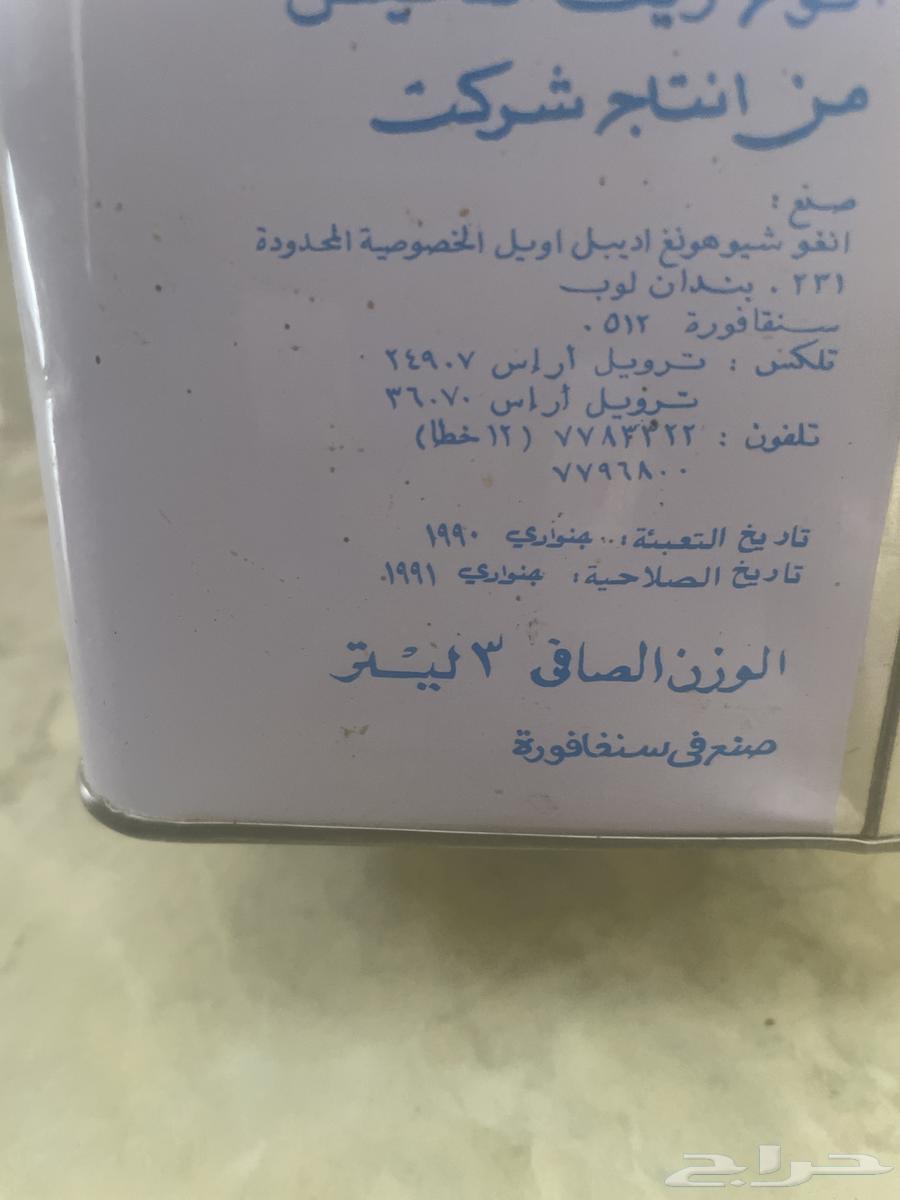 من انتاج شركت
صنع :
انغو شيوهونغ اديبل اويل الخصوصية المحدودة
٢٣١ . بندان لوب
سنقافورة ٥١٢ .
تلكس : ترويل أر إس ٢٤٩٠٧
ترويل أر إس ٣٦٠٧٠
تلفون : ٧٧٨٣٣٢٢ (١٢ خطا)
٧٧٩٦٨٠٠
تاريخ التعبئة : جنواري ١٩٩٠
تاريخ الصلاحية : جنواري ١٩٩١
الوزن الصافى ٣ ليْتر
صنع فى سنغافورة
حراج